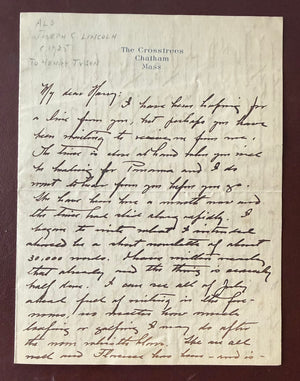 ALS
JOSEPH C. LINCOLN
(1925)
TO HENRY TYSON
The Crosstrees
Chatham
Mass
My dear Harry:
I have been hoping for
a line from you, but perhaps you have
been waiting to receive one from me.
The time is close at hand when you will
be heading for Panama and I do
want to hear from you before you go.
We have been here a month now and
the time has slid along rapidly. I
began to write what I intended
should be a short novelette of about
30,000 words. I have written nearly
that already and the thing is scarcely
half done. I can see all of July
ahead full of writing in the fore-
noons, no matter how much
loafing or golfing I may do after
the noon whistle blows. We are all
well and Florence has been - and is -